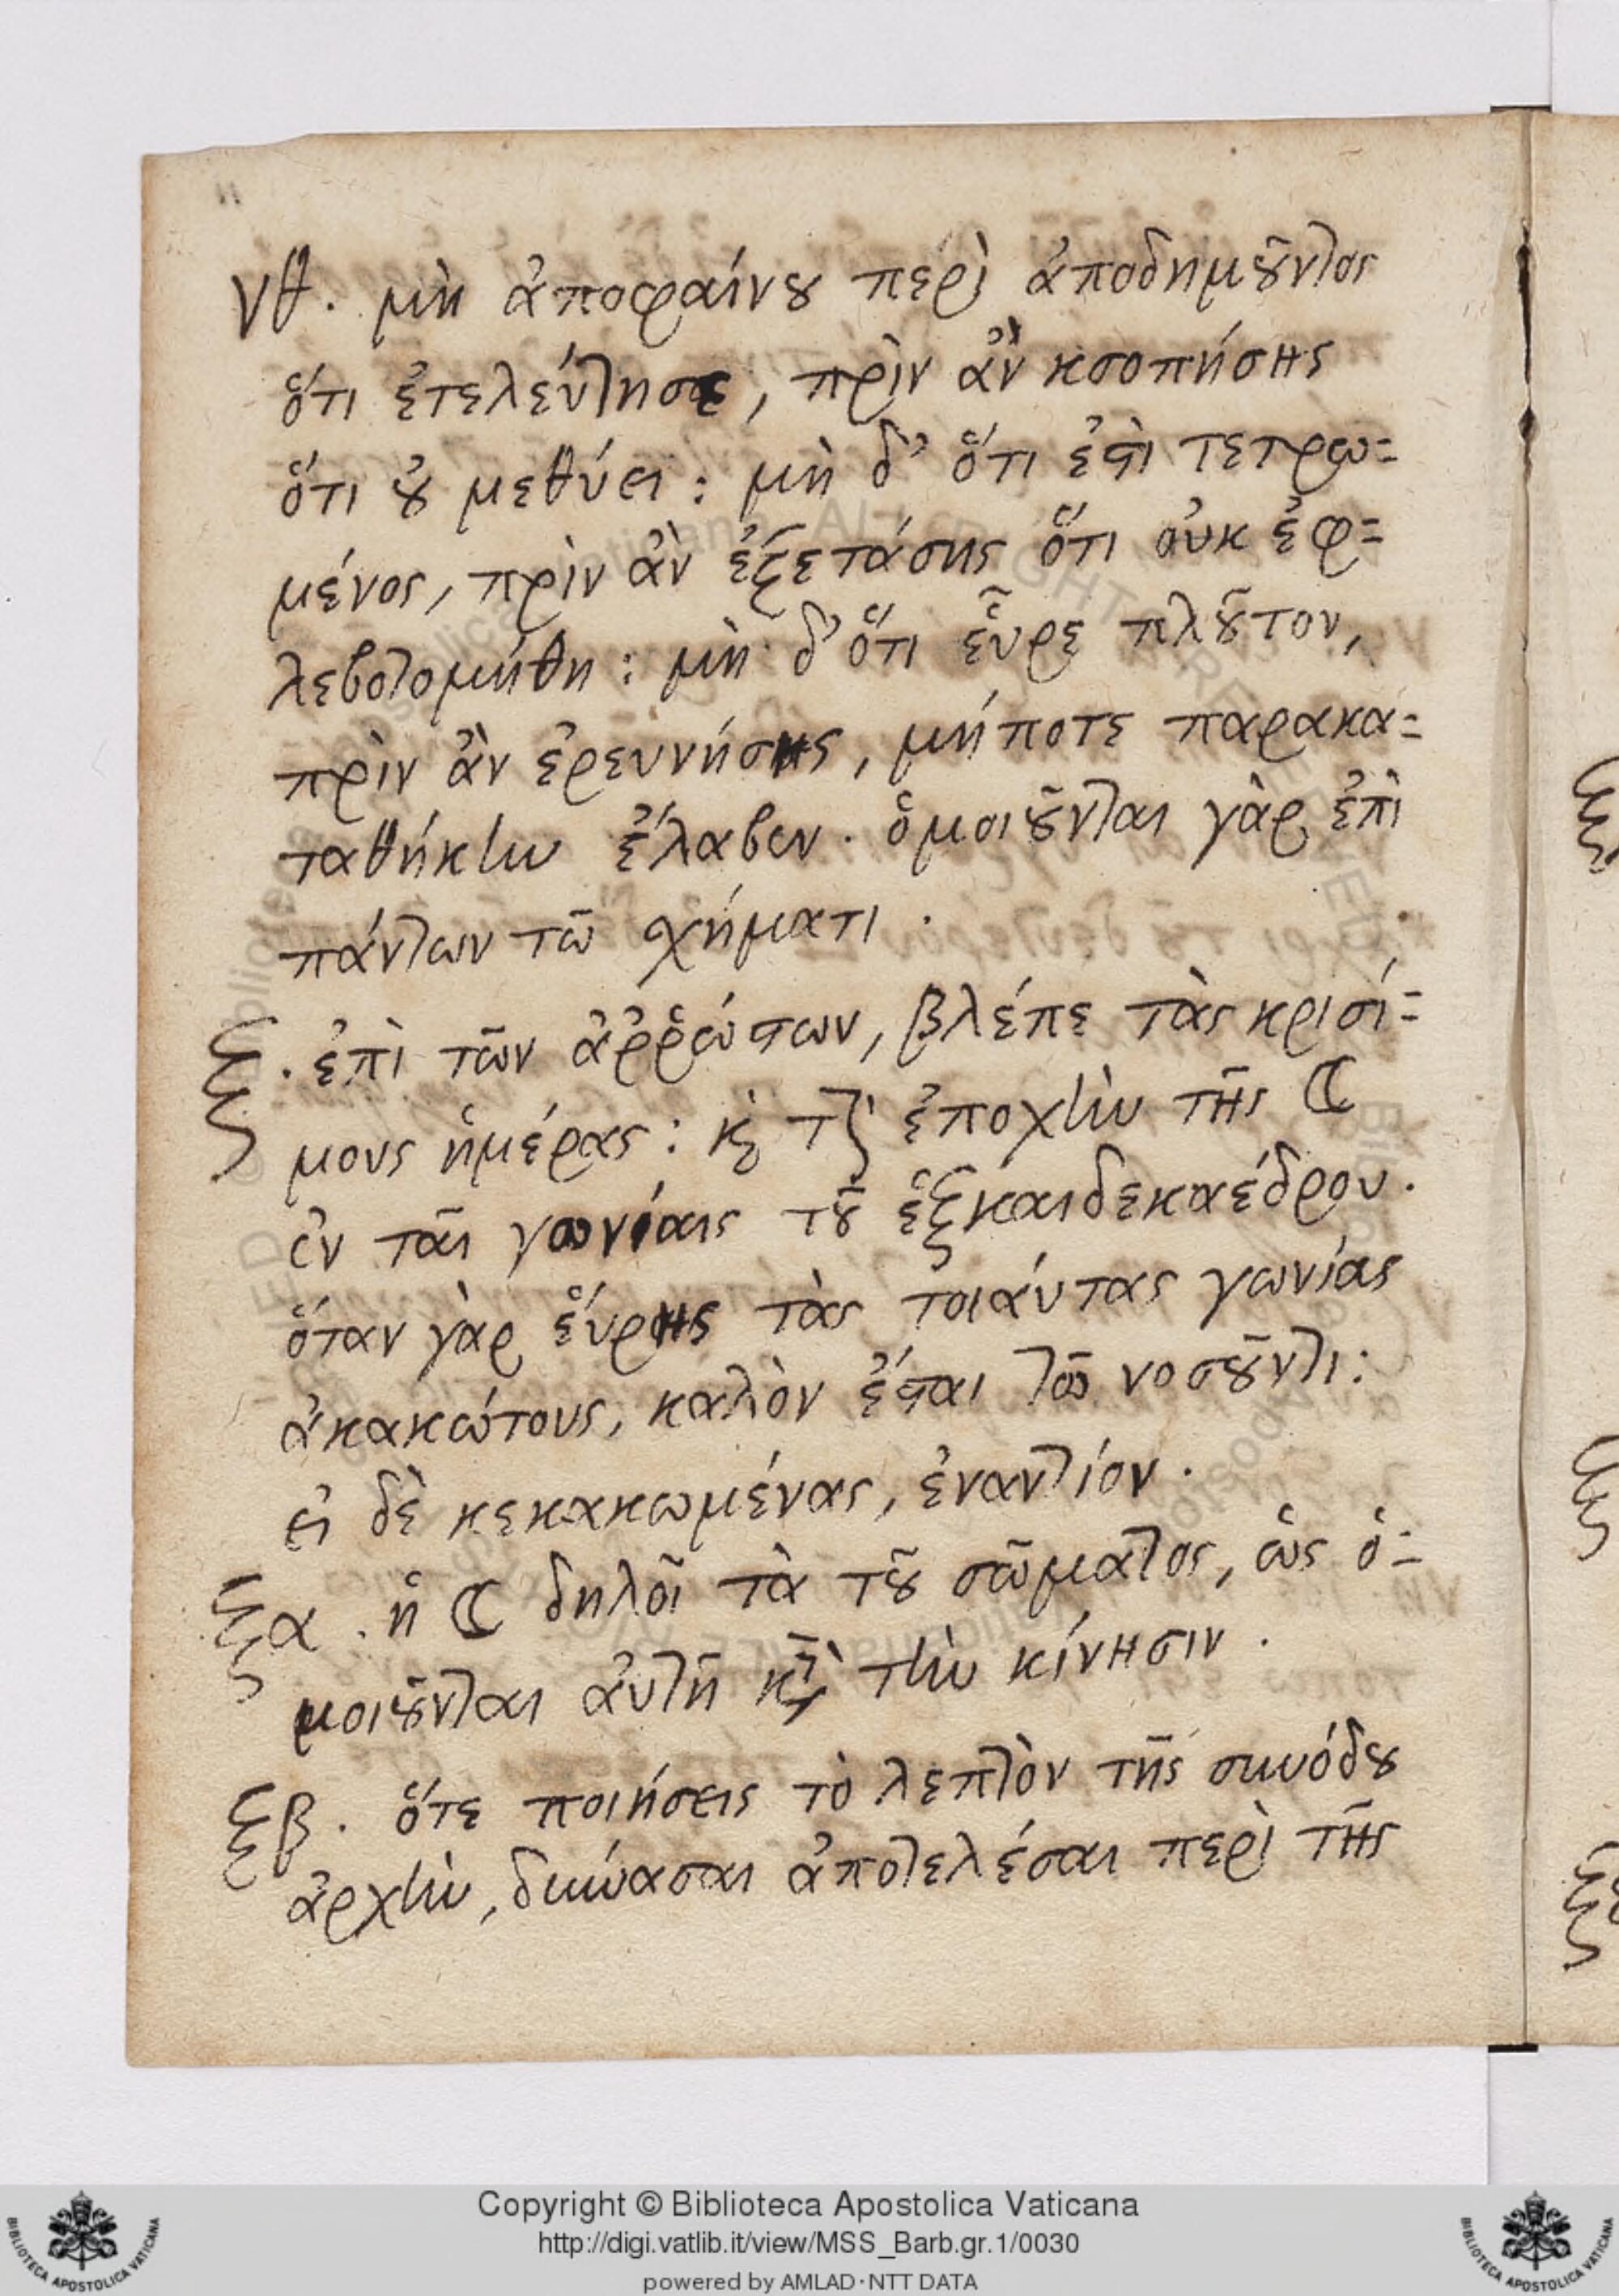 νθ. μὴ ἀποφαίνου περὶ ἀποδημοῦντος
ὅτι ἐτελεύτησε, πρὶν ἂν κσοπήσης
ὅτι οὐ μεθύει: μὴ δ' ὅτι ἐστὶ τετρω=
μένος, πρὶν ἂν ἐξετάσης ὅτι οὐκ ἐφ=
λεβοτομήθη: μὴ δ' ὅτι εὗρε πλοῦτον,
πρὶν ἂν ἐρευνήσης, μήποτε παρακα=
ταθήκην ἔλαβεν. ὁμοιοῦνται γὰρ ἐπὶ
πάντων τῶ σχήματι.
ξ. ἐπὶ τῶν ἀῤῥώστων, βλέπε τὰς κρισί=
μους ἡμέρας: κὶ τὴν ἐποχὴν τῆς ☾
ἐν ταῖ γωνίαις τοῦ ἑξκαιδεκαέδρου.
ὅταν γὰρ εὕρης τὰς τοιάυτας γωνίας
ἀκακώτους, καλὸν ἔσται τῶ νοσοῦντι:
εἰ δὲ κεκακωμένας, ἐναντίον.
ξα. ἡ ☾ δηλοῖ τὰ τοῦ σῶματος, ὡς ὁ=
μοιοῦνται ἀυτῆ κτὶ τὴν κίνησιν.
ξβ. ὅτε ποιήσεις τὸ λεπτὸν τῆς συνόδου
ἀρχὴν, δυνάσαι ἀποτελέσαι περὶ τῆς
Copyright © Biblioteca Apostolica Vaticana
http://digi.vatlib.it/view/MSS_Barb.gr.1/0030
powered by AMLAD·NTT DATA
BIBLIOTECA APOSTOLICA VATICANA
BIBLIOTECA APOSTOLICA VATICANA